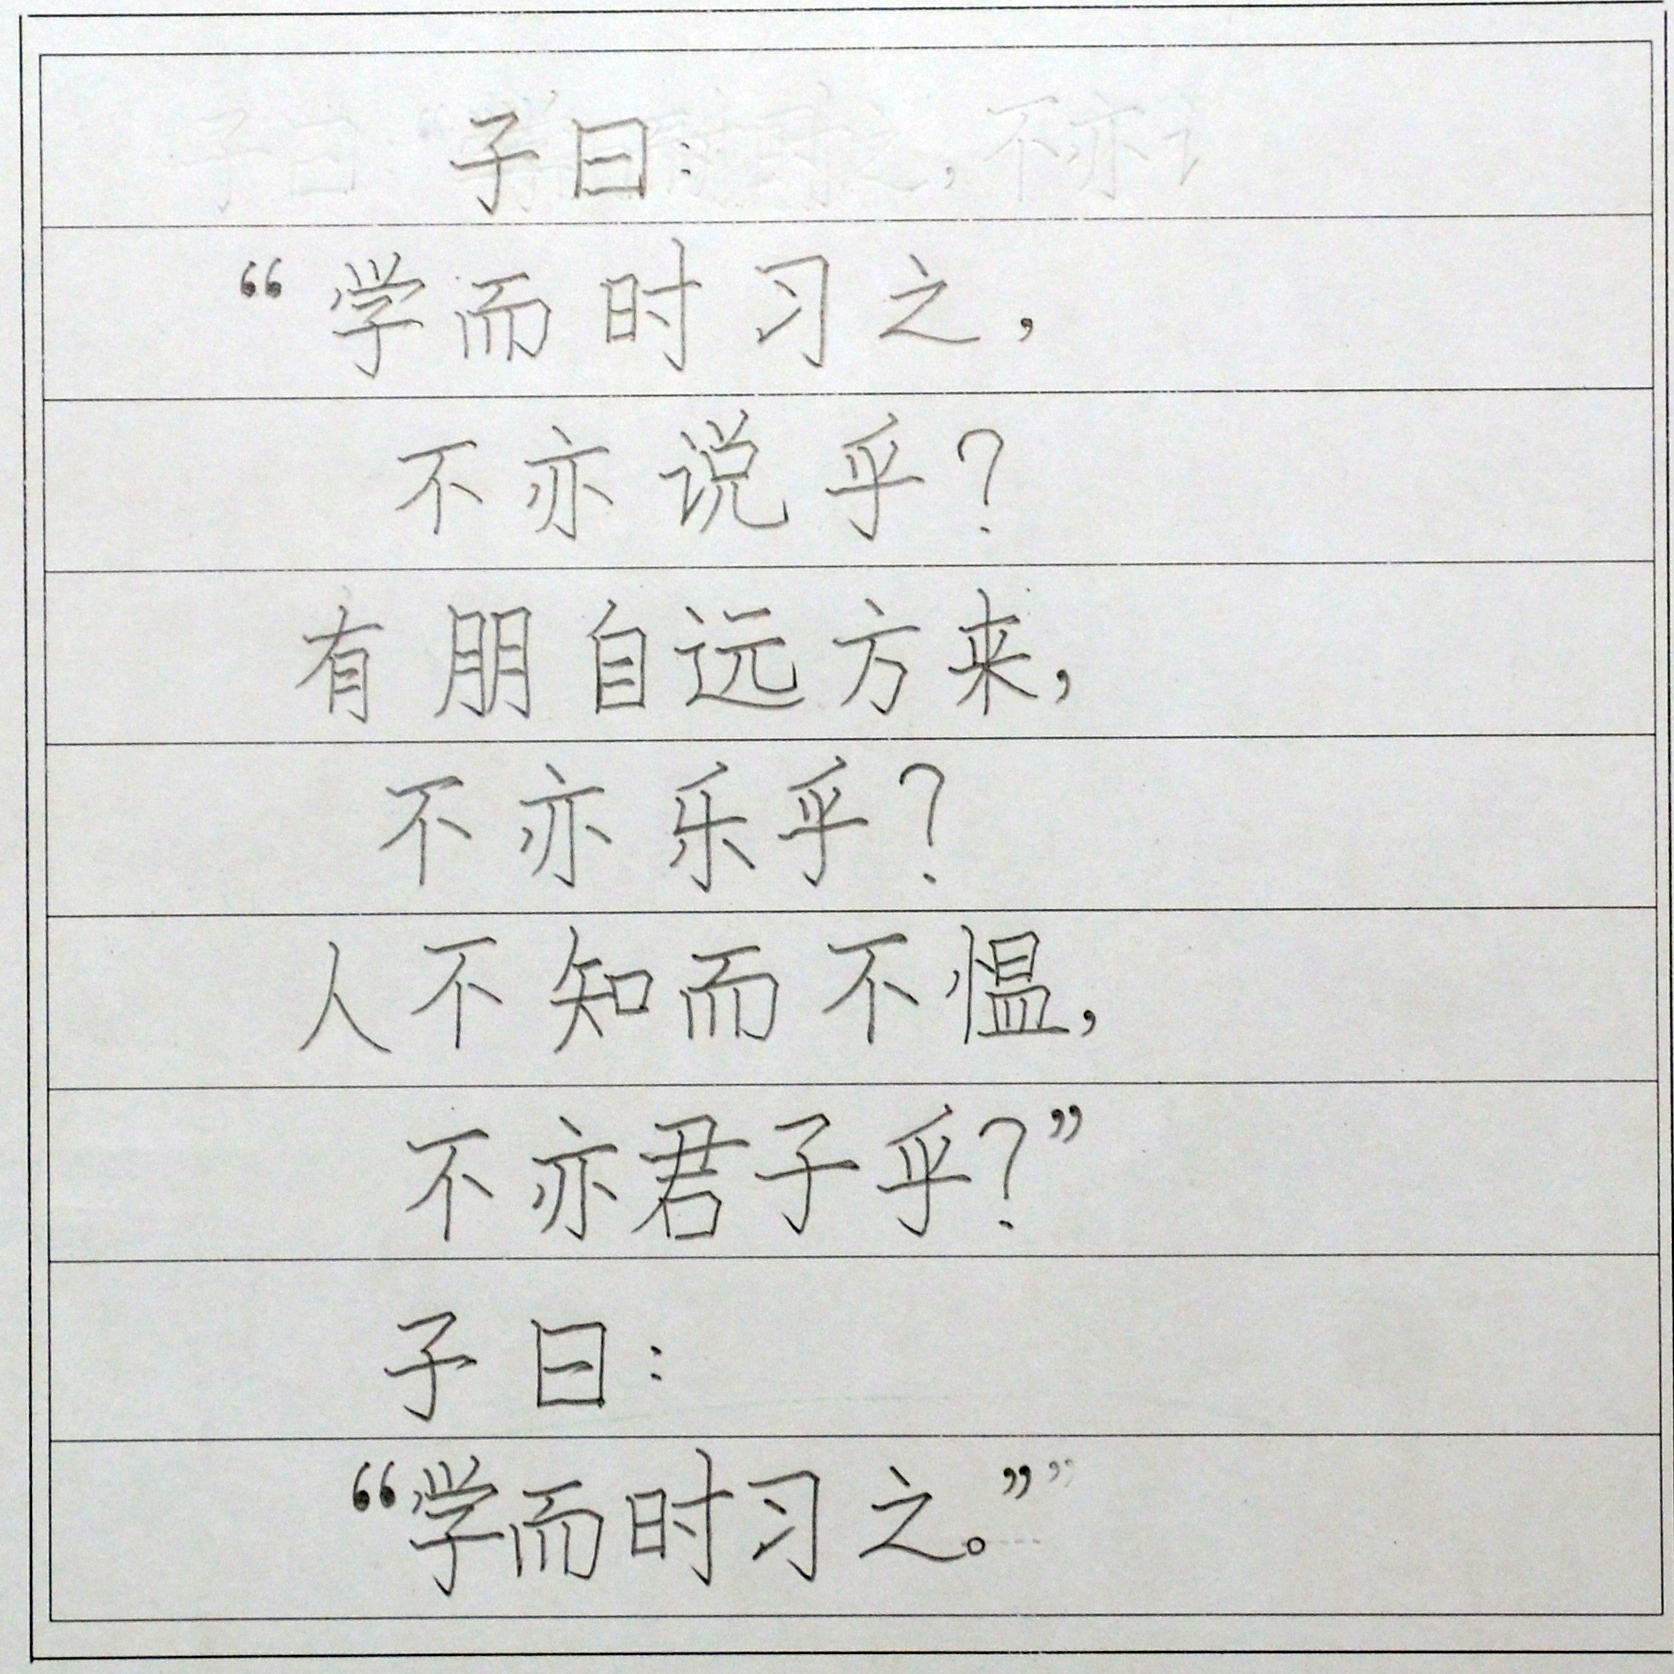 子曰：
“学而时习之，
不亦说乎？
有朋自远方来，
不亦乐乎？
人不知而不愠，
不亦君子乎？”
子曰：
“学而时习之。”